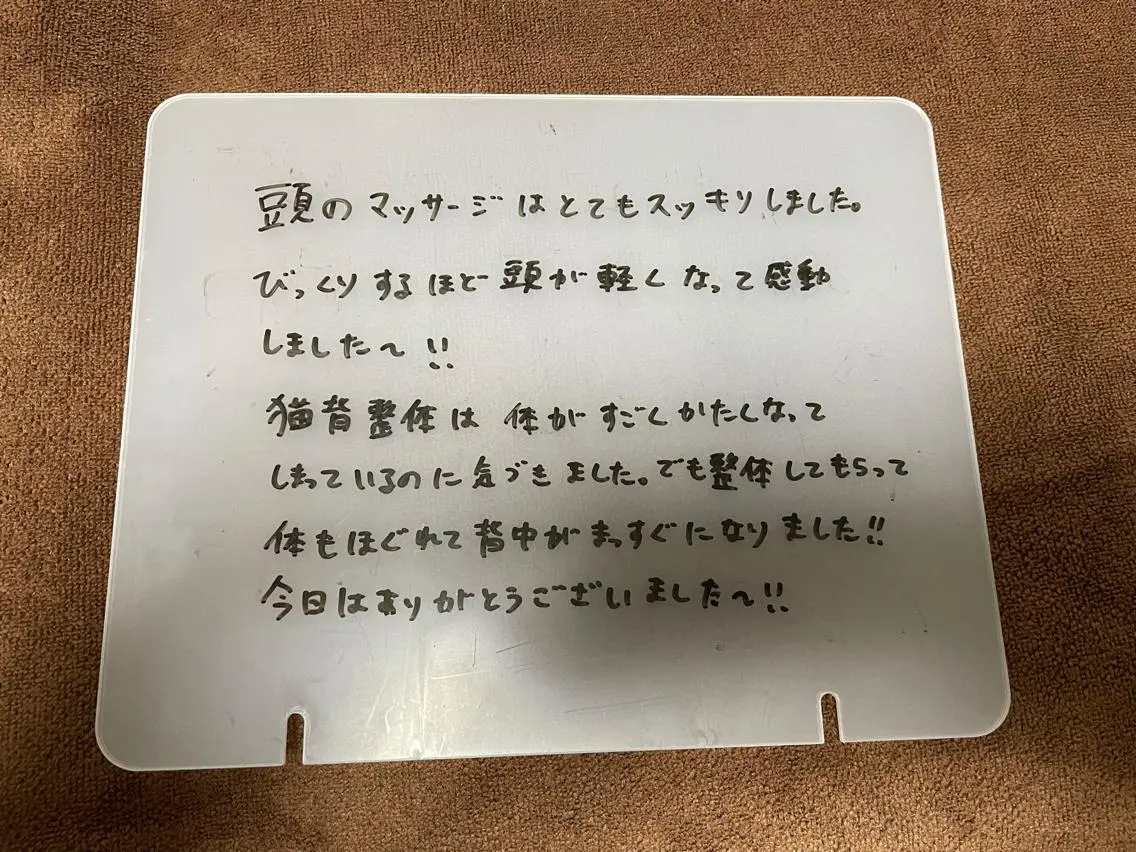 頭のマッサージはとてもスッキリしました。
びっくりするほど頭が軽くなって感動
しました〜!!
猫背整体は体がすごくかたくなって
しまっているのに気づきました。でも整体してもらって
体もほぐれて背中がまっすぐになりました!!
今日はありがとうございました〜!!